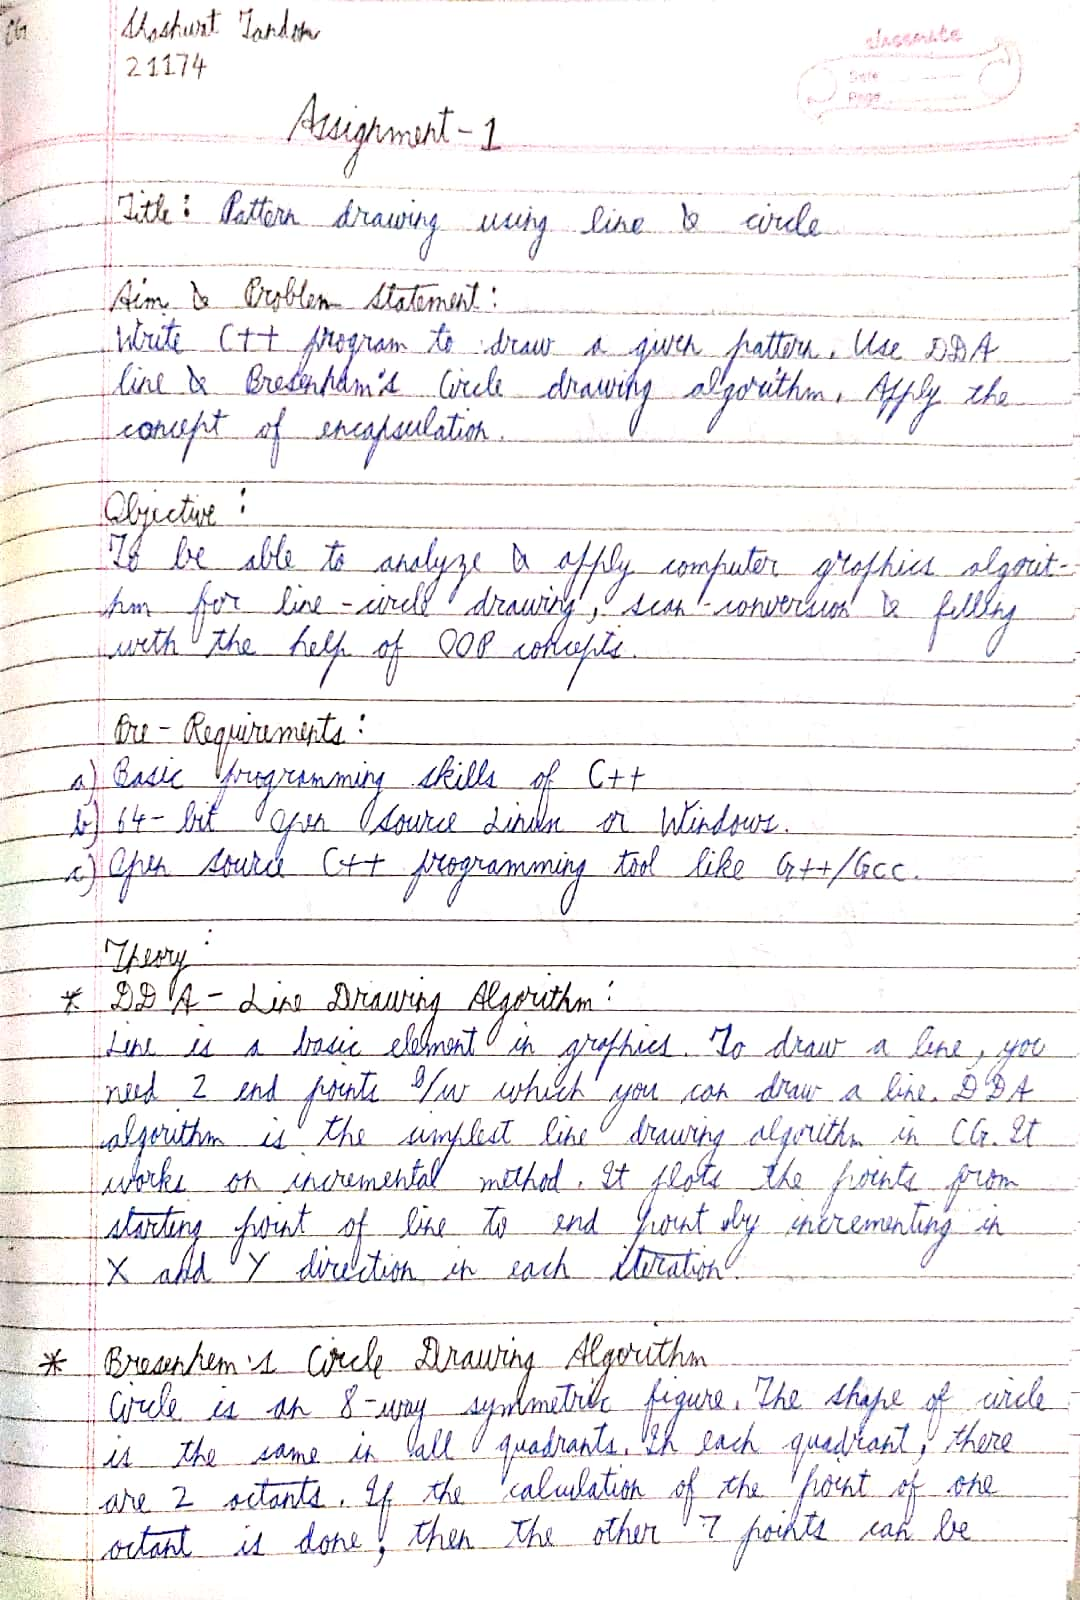 CG
Shashwat Tandon
21174
classmate
Date
Page
Assignment - 1
Title : Pattern drawing using line & circle
Aim & Problem statement :
Write C++ program to draw a given pattern. Use DDA
line & Bresenham's Circle drawing algorithm. Apply the
concept of encapsulation.
Objective :
To be able to analyze & apply computer graphics algorit-
hm for line-circle drawing, scan-conversion & filling
with the help of OOP concepts.
Pre-Requirements :
a) Basic programming skills of C++
b) 64-bit open source Linux or Windows.
c) Open source C++ programming tool like G++/GCC.
Theory :
* DDA - Line Drawing Algorithm :
Line is a basic element in graphics. To draw a line, you
need 2 end points b/w which you can draw a line. DDA
algorithm is the simplest line drawing algorithm in CG. It
works on incremental method. It plots the points from
starting point of line to end point by incrementing in
X and Y direction in each iteration.
* Bresenhem's Circle Drawing Algorithm
Circle is an 8-way symmetric figure. The shape of circle
is the same in all quadrants. In each quadrant, there
are 2 octants. If the calculation of the point of one
octant is done, then the other 7 points can be